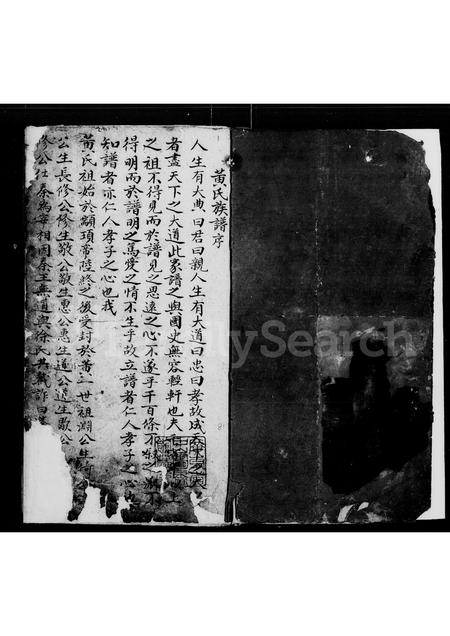 黃氏族譜序
人生有大典曰君曰親人生有大道曰忠曰孝故成天下之
者盡天下之大道此家譜之與國史無容輕軒也夫
之祖不得見而於譜見之思遠之心不遂乎千百條
得明而於譜明之焉愛之情不生乎故立譜者仁人孝子之心也
知譜者亦仁人孝子之心也我
黃氏祖始於顓頊帝陸終之後受封於黃一世祖淵公生
公生長修公修生敬公敬生惠公惠生遙公遙生敬公
修公仕秦為宰相因秦王無道與徐氏
FamilySearch